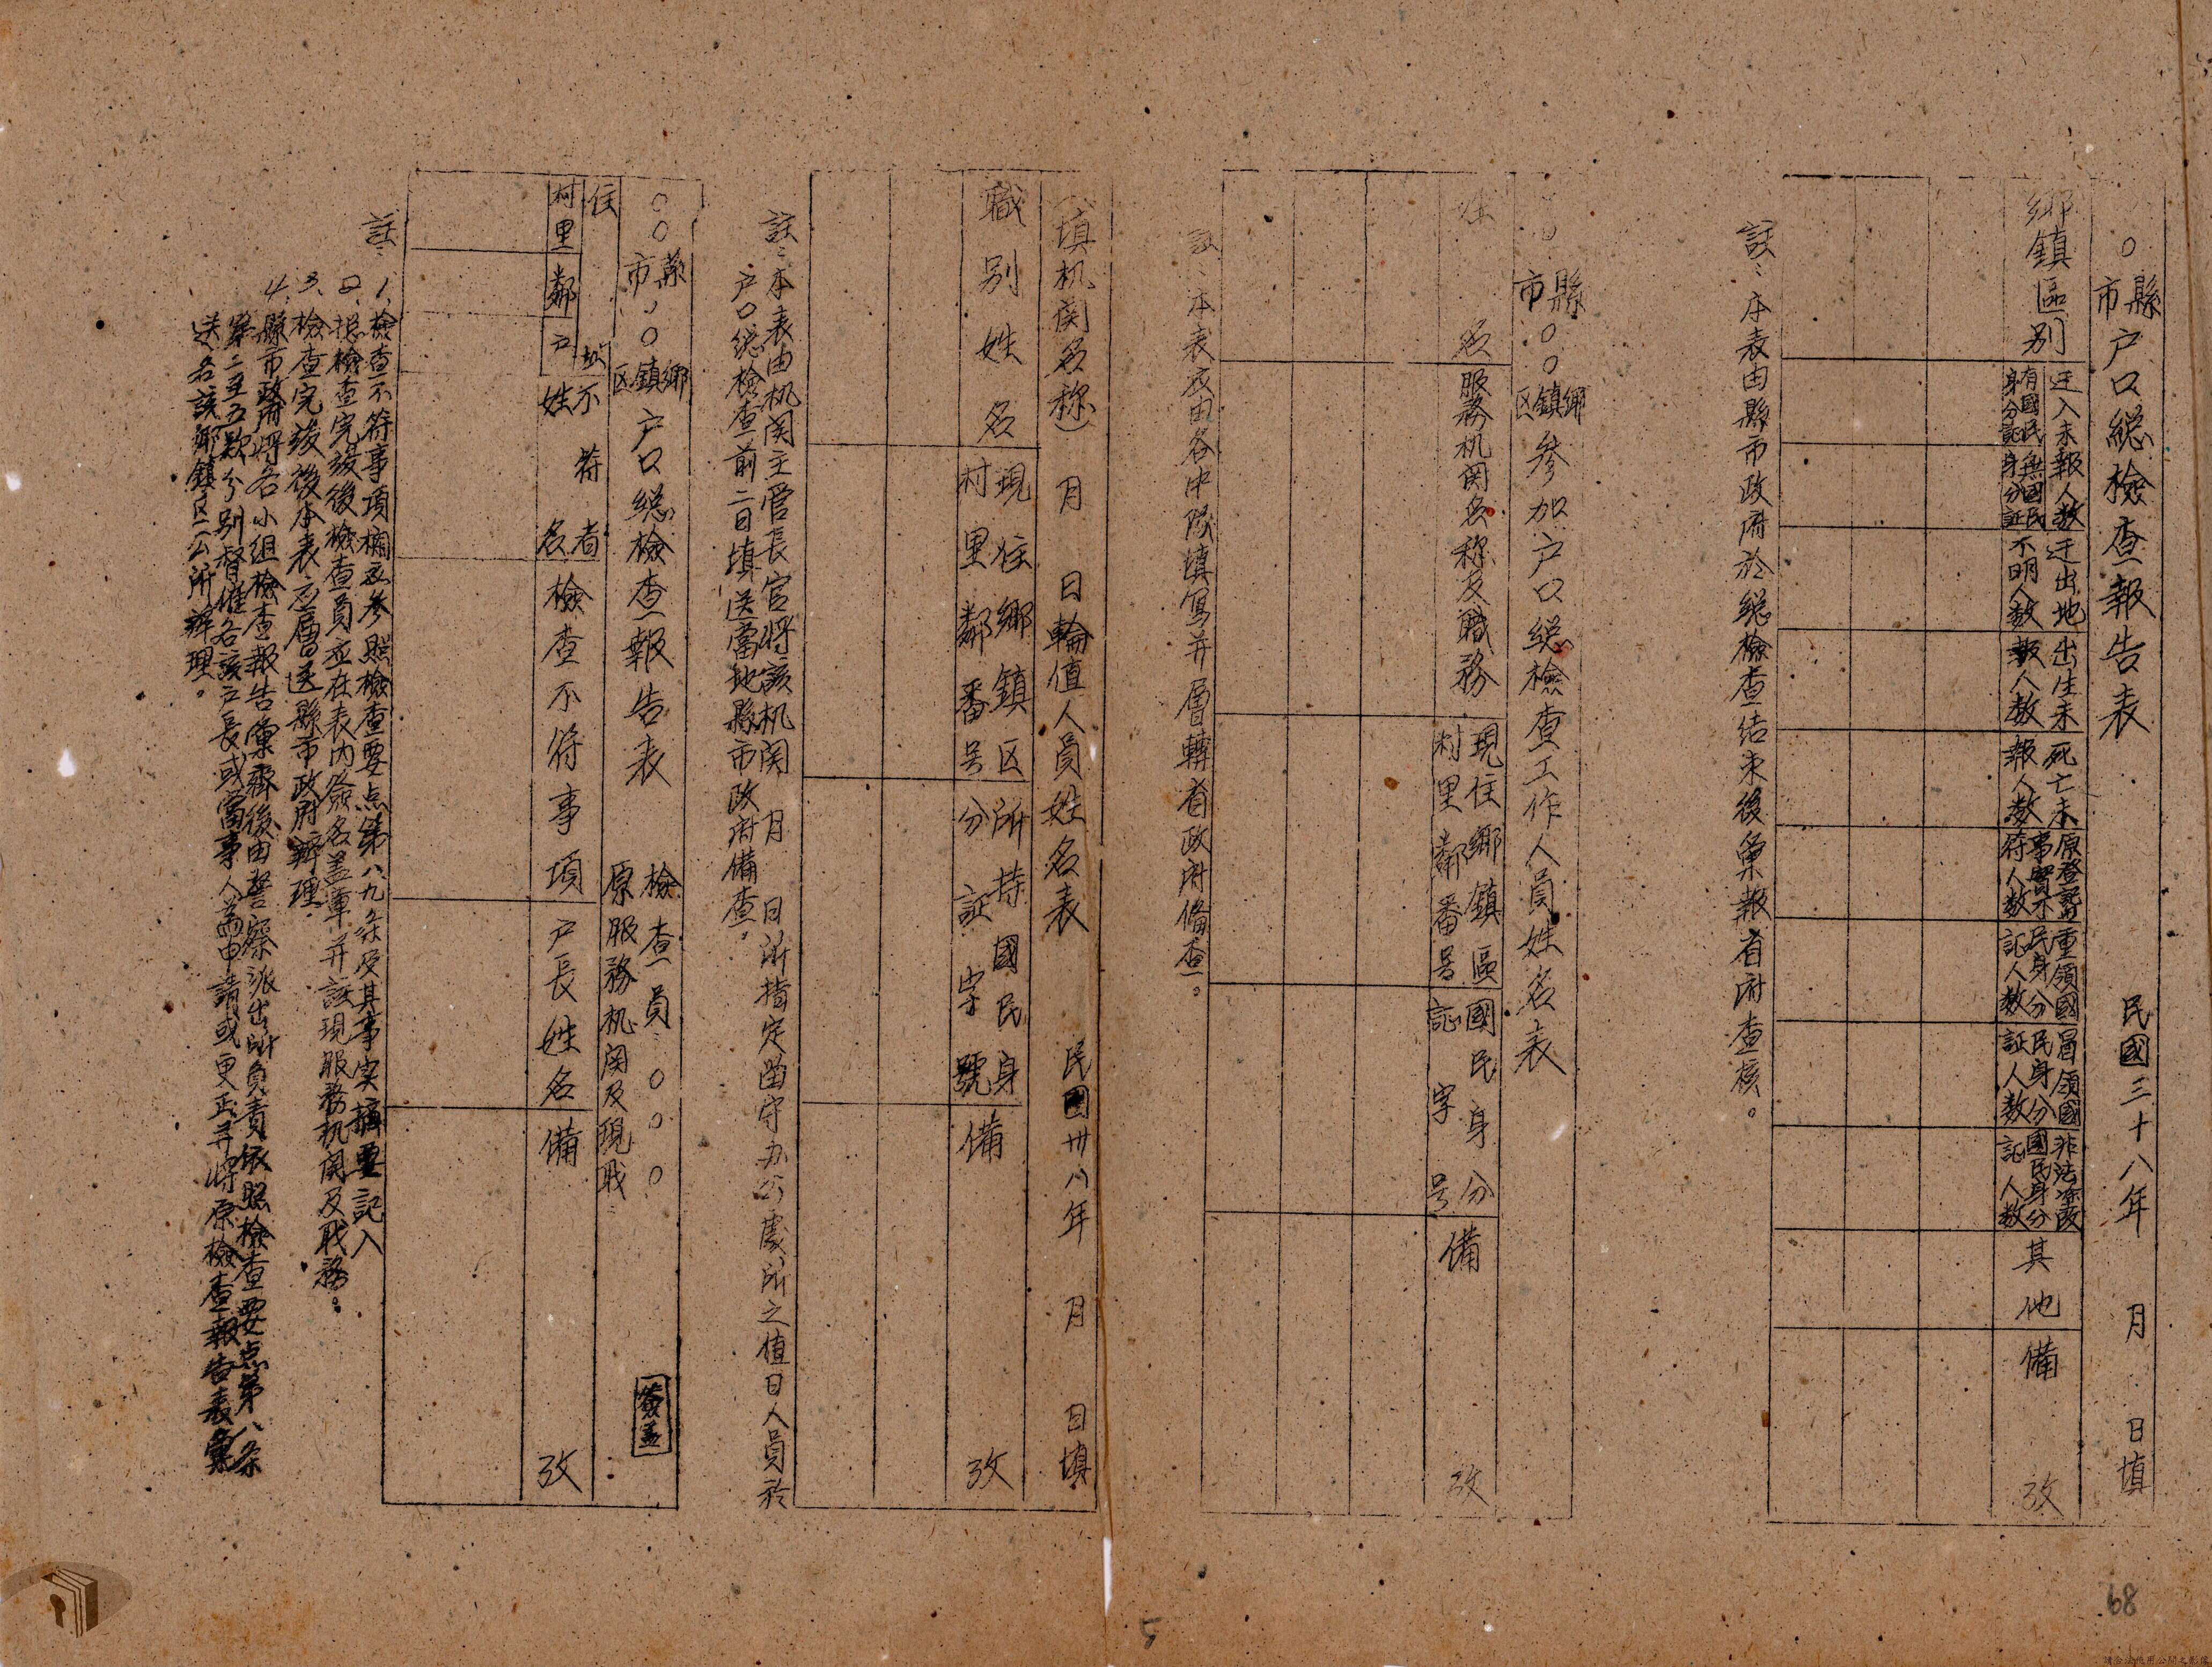 ○市縣户口総檢查報告表 民國三十八年 月 日填
鄉鎮區别
迁入未報人数
有國民身分証
無國民身分証
迁出地不明人数
出生未報人数
死亡未報人数
原登記事實不符人数
重領國民身分証人数
冒領國民身分証人数
非法塗改國民身分証人数
其他
備攷
註：本表由縣市政府於総檢查结束後彙報省府查核。
○市縣○○区鎮鄉参加户口総檢查工作人員姓名表
姓名
服務机関名称及職務
現住鄉鎮區村里鄰番号
國民身分証字号
備攷
註：本表应由各中隊填写并層轉省政府備查。
（填机関名称） 月 日輪值人員姓名表 民國卅八年 月 日填
職别姓名
現住鄉鎮区村里鄰番号
所持國民身分証字號
備攷
註：本表由机関主管長官將該机関 月 日所指定留守办公處所之值日人員於
户口総檢查前二日填送當地縣市政府備查。
○○市縣○○区鎮鄉户口総檢查報告表
檢查員：○○○ 簽蓋
原服務机関及現职：
住址
村里鄰户
不符者姓名
檢查不符事項
户長姓名
備攷
註：1.檢查不符事項欄应参照檢查要点第八九条及其事实摘要記入
2.総檢查完竣後檢查員应在表内簽名盖章并註現服務机関及职務。
3.檢查完竣後本表应層送縣市政府辦理.
4.縣市政府將各小组檢查報告彙齊後由警察派出所負責依照檢查要点第八条
第二至五款分别督催各該户長或當事人為申請或更正并將原檢查報告表彙
送各該鄉鎮区公所辦理。
5
68
請合法使用公開之影像